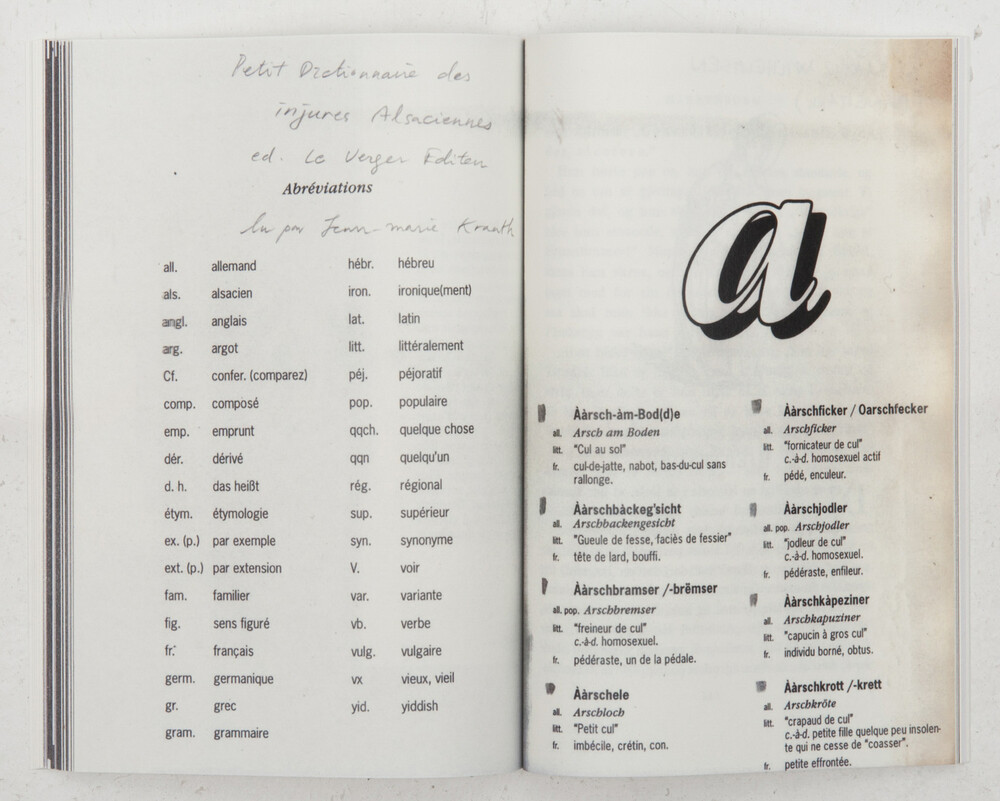 Petit Dictionnaire des
injures Alsaciennes
ed. Le Verger Editeu
Abréviations
lu par Jean-marie Krauth
all. allemand
als. alsacien
angl. anglais
arg. argot
Cf. confer. (comparez)
comp. composé
emp. emprunt
dér. dérivé
d. h. das heißt
étym. étymologie
ex. (p.) par exemple
ext. (p.) par extension
fam. familier
fig. sens figuré
fr. français
germ. germanique
gr. grec
gram. grammaire
hébr. hébreu
iron. ironique(ment)
lat. latin
litt. littéralement
péj. péjoratif
pop. populaire
qqch. quelque chose
qqn quelqu'un
rég. régional
sup. supérieur
syn. synonyme
V. voir
var. variante
vb. verbe
vulg. vulgaire
vx vieux, vieil
yid. yiddish
a
Ààrsch-àm-Bod(d)e
all. Arsch am Boden
litt. "Cul au sol"
fr. cul-de-jatte, nabot, bas-du-cul sans
rallonge.
Ààrschbàckeg'sicht
all. Arschbackengesicht
litt. "Gueule de fesse, faciès de fessier"
fr. tête de lard, bouffi.
Ààrschbramser /-brëmser
all. pop. Arschbremser
litt. "freineur de cul"
c.-à-d. homosexuel.
fr. pédéraste, un de la pédale.
Ààrschele
all. Arschloch
litt. "Petit cul"
fr. imbécile, crétin, con.
Ààrschficker / Oarschfecker
all. Arschficker
litt. "fornicateur de cul"
c.-à-d. homosexuel actif
fr. pédé, enculeur.
Ààrschjodler
all. pop. Arschjodler
litt. "jodleur de cul"
c.-à-d. homosexuel.
fr. pédéraste, enfileur.
Ààrschkàpeziner
all. Arschkapuziner
litt. "capucin à gros cul"
fr. individu borné, obtus.
Ààrschkrott /-krett
all. Arschkröte
litt. "crapaud de cul"
c.-à-d. petite fille quelque peu insolen-
te qui ne cesse de "coasser".
fr. petite effrontée.